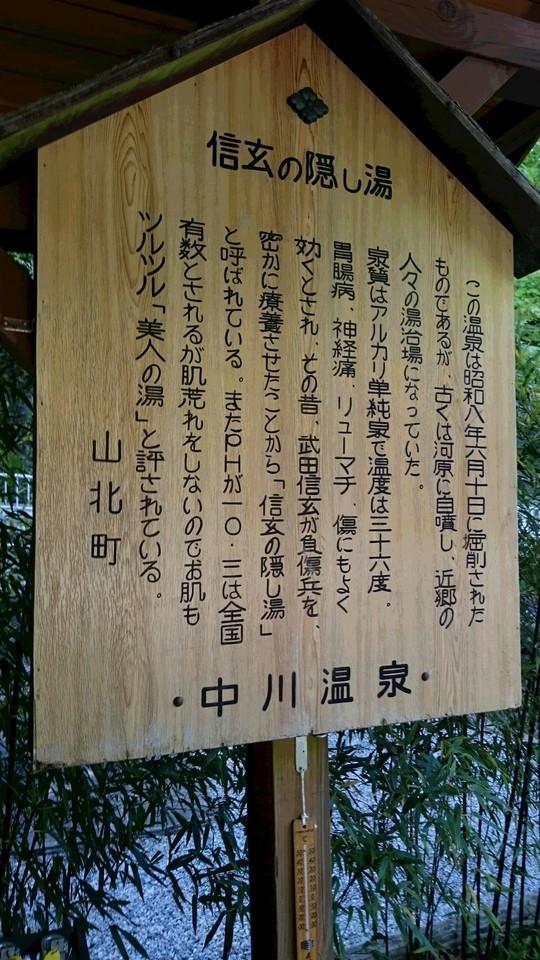 信玄の隠し湯
この温泉は昭和八年六月十日に堀削された
ものであるが、古くは河原に自噴し、近郷の
人々の湯治場になっていた。
泉質はアルカリ単純泉で温度は三十六度。
胃腸病、神経痛、リューマチ、傷にもよく
効くとされ、その昔、武田信玄が負傷兵を、
密かに療養させたことから「信玄の隠し湯」
と呼ばれている。またpHが一〇・三は全国
有数とされるが肌荒れをしないのでお肌も
ツルツル「美人の湯」と評されている。
山北町
・中川温泉・